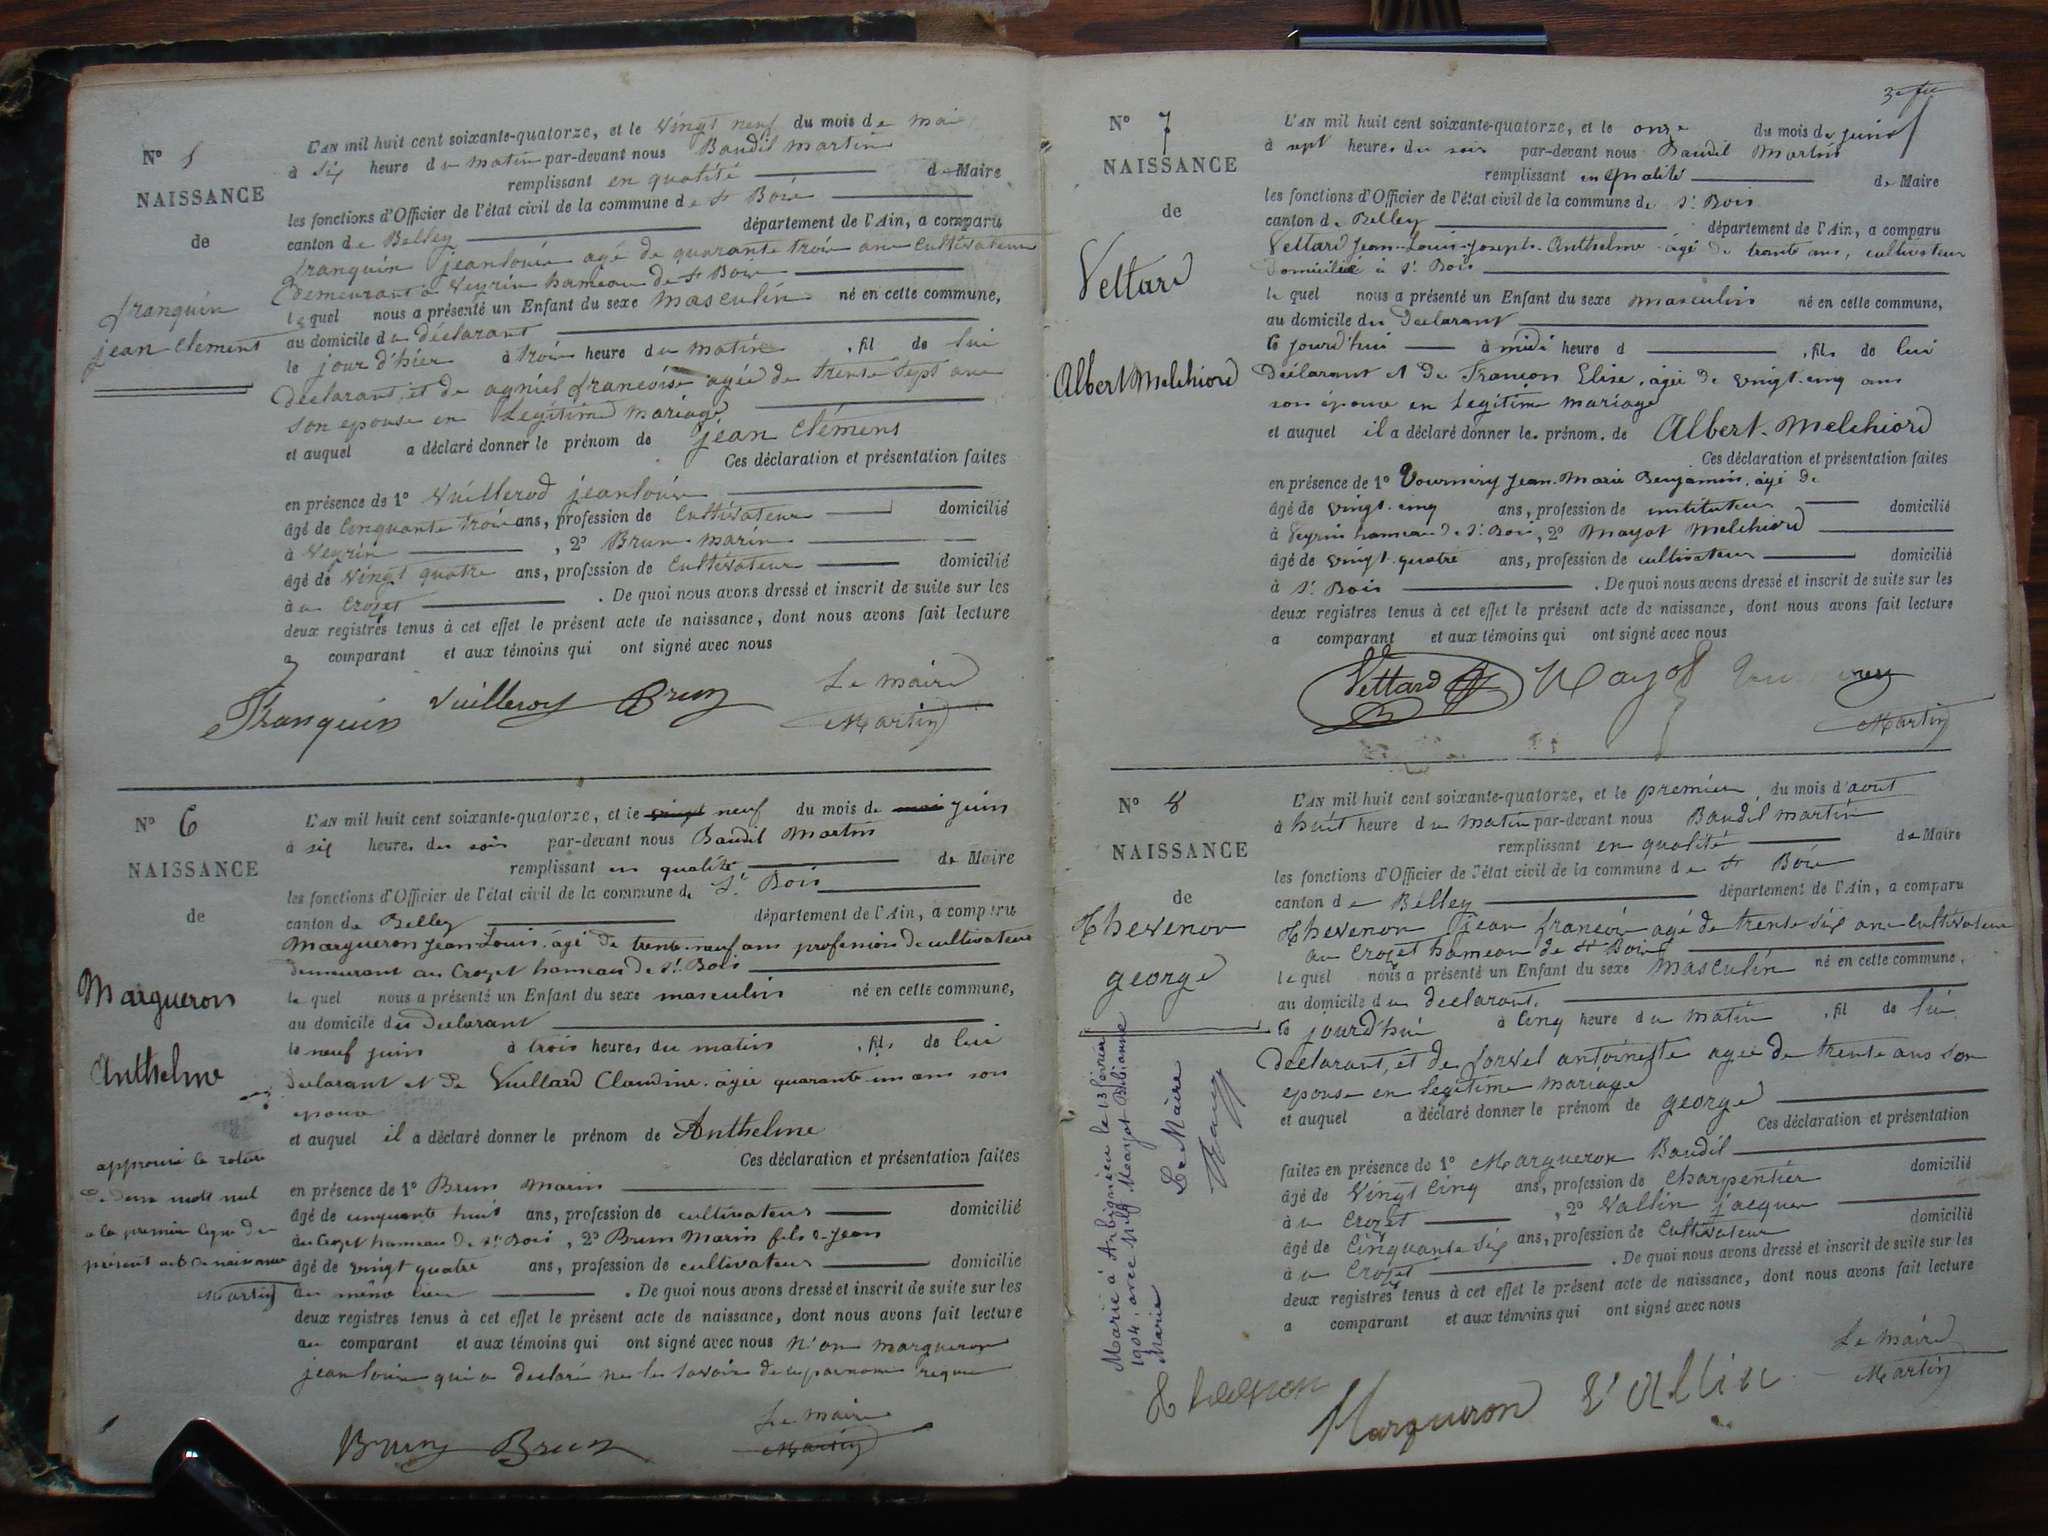 N° 5
NAISSANCE
de
franquin
jean clement
L'AN mil huit cent soixante-quatorze, et le vingt neuf du mois de mai
à six heure du matin par-devant nous Baudil martin
remplissant en qualité de Maire
les fonctions d'Officier de l'état civil de la commune de St Bois
canton de Belley département de l'Ain, a comparu
franquin jean louis agé de quarante trois ans cultivateur
demeurant à Veyrin hameau de St Bois
lequel nous a présenté un Enfant du sexe masculin né en cette commune,
au domicile du déclarant
le jour d'hier à trois heure du matin , fil de lui
declarant, et de agniel francoise agée de trente sept ans
son epouse en Legitime mariage
et auquel a déclaré donner le prénom de jean clément
Ces déclaration et présentation faites
en présence de 1° Vuillerod jean louis
âgé de Cinquante trois ans, profession de Cultivateur domicilié
à Veyrin , 2° Brun marin
âgé de vingt quatre ans, profession de Cultivateur domicilié
à u Crozet . De quoi nous avons dressé et inscrit de suite sur les
deux registres tenus à cet effet le présent acte de naissance, dont nous avons fait lecture
a comparant et aux témoins qui ont signé avec nous
Franquin Vuilleroy Brun Le maire
Martin
N° 6
NAISSANCE
de
Margueron
Anthelme
approuvé la rature
de deux mots nul
a la premiere ligne du
présent acte de naissance
Martin
L'AN mil huit cent soixante-quatorze, et le vingt neuf du mois de mai juin
à six heures du soir par-devant nous Baudil Martin
remplissant en qualité de Maire
les fonctions d'Officier de l'état civil de la commune de St Bois
canton de Belley département de l'Ain, a comparu
Margueron Jean Louis, âgé de trente-neuf ans profession de cultivateur
demeurant au Crozet hameau de St Bois
le quel nous a présenté un Enfant du sexe masculin né en cette commune,
au domicile du Déclarant
le neuf juin à trois heures du matin , fils de lui
déclarant et de Vuillard Claudine, âgée quarante un ans son
epouse
et auquel il a déclaré donner le prénom de Anthelme
Ces déclaration et présentation faites
en présence de 1° Brun Marin
âgé de cinquante huit ans, profession de cultivateur domicilié
au Crozet hameau de St Bois, 2° Brun Marin fils de Jean
âgé de vingt quatre ans, profession de cultivateur domicilié
au même lieu . De quoi nous avons dressé et inscrit de suite sur les
deux registres tenus à cet effet le présent acte de naissance, dont nous avons fait lecture
au comparant et aux témoins qui ont signé avec nous n'on margueron
jean louis qui a declaré ne le savoir de ce requis
Brun Brun Le maire
Martin
3e fet
N° 7
NAISSANCE
de
Vettard
Albert Melchiord
L'AN mil huit cent soixante-quatorze, et le onze du mois de juin
à sept heures du soir par-devant nous Baudil Martin
remplissant en qualité de Maire
les fonctions d'Officier de l'état civil de la commune de St Bois
canton de Belley département de l'Ain, a comparu
Vettard Jean-Louis-Joseph-Anthelme âgé de trente ans, cultivateur
domicilié à St Bois
le quel nous a présenté un Enfant du sexe masculin né en cette commune,
au domicile du Déclarant
le jourd'hui à midi heure d , fils de lui
Déclarant et de Françon Elise, âgée de vingt-cinq ans
son épouse en Legitime Mariage
et auquel il a déclaré donner le prénom de Albert-Melchiord
Ces déclaration et présentation faites
en présence de 1° Vournery Jean-Marie Benjamin, âgé de
âgé de vingt-cinq ans, profession de instituteur domicilié
à Veyrin hameau de St Bois, 2° Mayot Melchiord
âgé de vingt-quatre ans, profession de cultivateur domicilié
à St Bois . De quoi nous avons dressé et inscrit de suite sur les
deux registres tenus à cet effet le présent acte de naissance, dont nous avons fait lecture
a comparant et aux témoins qui ont signé avec nous
Vettard Mayot
Martin
N° 8
NAISSANCE
de
Thevenon
george
Marié à Arbignieu le 13 février
1904, avec Melle Mayot Bibianne
Marie
Le Maire
L'AN mil huit cent soixante-quatorze, et le premier du mois d'aout
à huit heure du matin par-devant nous Baudil martin
remplissant en qualité de Maire
les fonctions d'Officier de l'état civil de la commune de St Bois
canton de Belley département de l'Ain, a comparu
Thevenon jean françois agé de trente six ans cultivateur
au Crozet hameau de St Bois
le quel nous a présenté un Enfant du sexe masculin né en cette commune,
au domicile du declarant
le jourd'hui à Cinq heure du matin , fil de lui
declarant, et de antoinette agée de trente ans son
epouse en legitime mariage
et auquel a déclaré donner le prénom de george
Ces déclaration et présentation
faites en présence de 1° Margueron Baudil
âgé de Vingt Cinq ans, profession de Charpentier domicilié
à u Crozet , 2° Vallin jacques
âgé de Cinquante six ans, profession de Cultivateur domicilié
à u Crozet . De quoi nous avons dressé et inscrit de suite sur les
deux registres tenus à cet effet le présent acte de naissance, dont nous avons fait lecture
a comparant et aux témoins qui ont signé avec nous
Thevenon Margueron Vallin Le maire
Martin